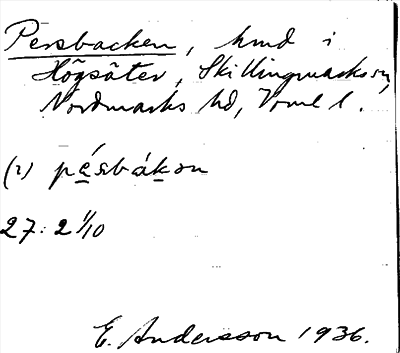 Persbacken, hmd i
Högsäter, Skillingmarks sn,
Nordmarks hd, Vrml l.
(2) pę́sbákən
27: 2 1/10
E. Andersson 1936.